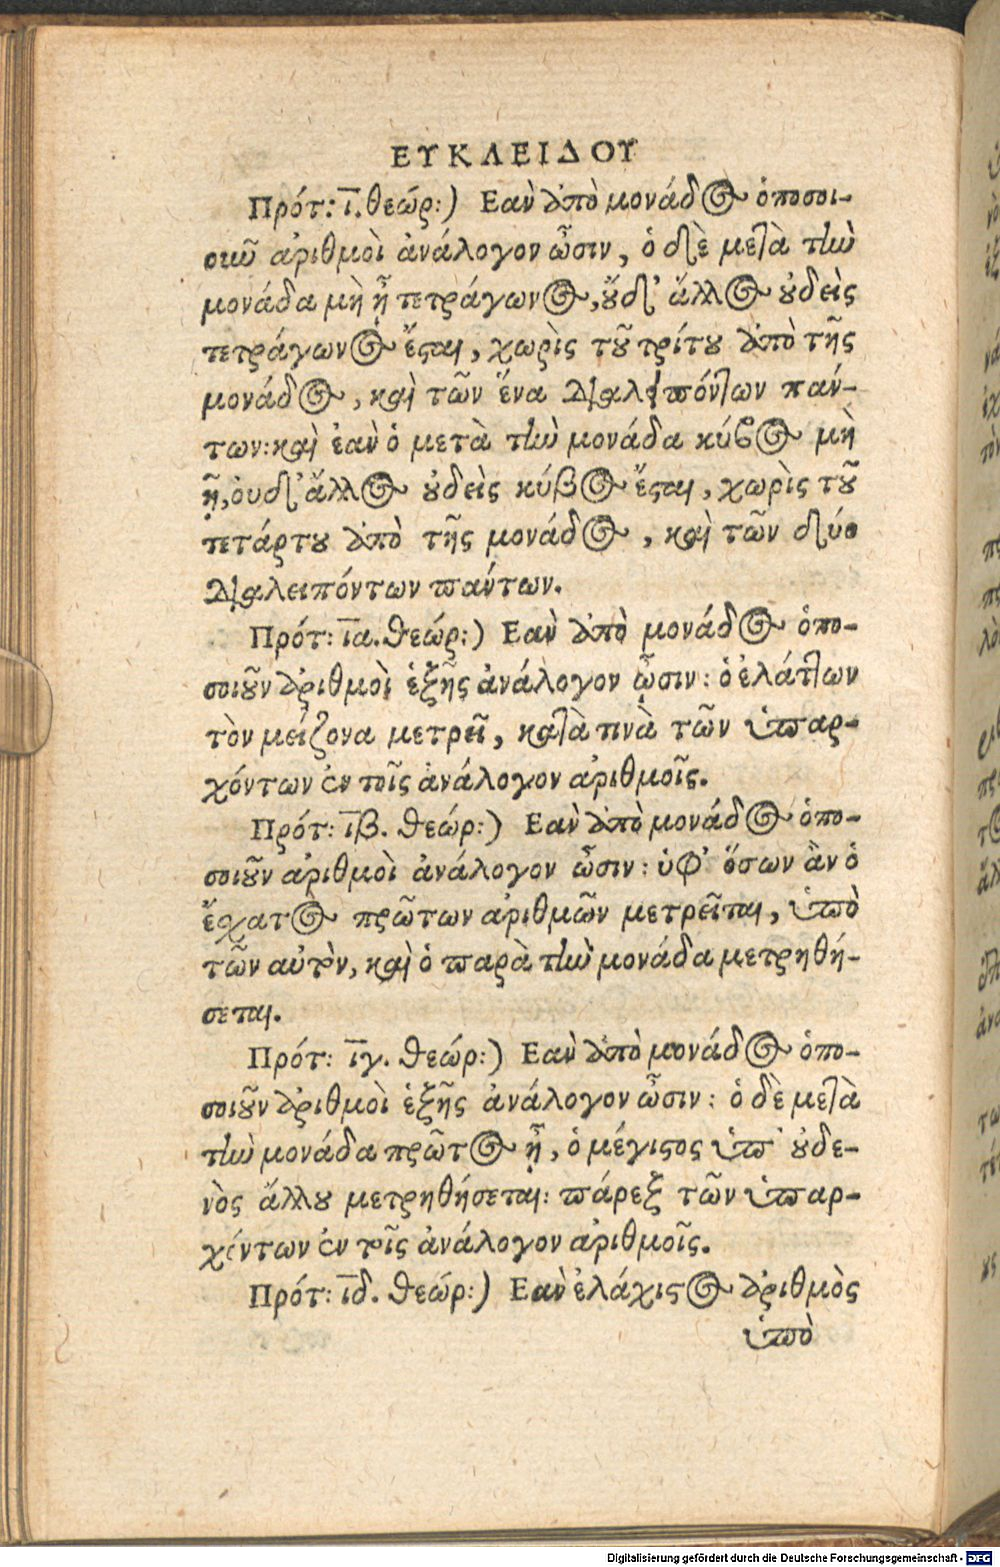 ΕΥΚΛΕΙΔΟΥ
Πρότ: ῑ. θεώρ:) Εαν ἀπὸ μονάδος ὁποσοι-
ουν ἀριθμοὶ ἀνάλογον ὦσιν, ὁ δὲ μετὰ τὴν
μονάδα μὴ ᾖ τετράγωνος, οὐδ' ἄλλος οὐδεὶς
τετράγωνος ἔσται, χωρὶς τοῦ τρίτου ἀπὸ τῆς
μονάδος, καὶ τῶν ἕνα διαλιπόντων πάν-
των: καὶ ἐαν ὁ μετὰ τὴν μονάδα κύβος μὴ
ᾖ, ουδ' ἄλλος οὐδεὶς κύβος ἔσται, χωρὶς τοῦ
τετάρτου ἀπὸ τῆς μονάδος, καὶ τῶν δύο
διαλειπόντων πάντων.
Πρότ: ῑα. θεώρ:) Εαν ἀπὸ μονάδος ὁπο-
σοιοῦν ἀριθμοὶ ἑξῆς ἀνάλογον ὦσιν: ὁ ἐλάττων
τὸν μείζονα μετρεῖ, κατὰ τινὰ τῶν ὑπαρ-
χόντων ἐν τοῖς ἀνάλογον ἀριθμοῖς.
Πρότ: ῑβ. θεώρ:) Εαν ἀπὸ μονάδος ὁπο-
σοιοῦν ἀριθμοὶ ἀνάλογον ὦσιν: ὑφ' ὅσων ἂν ὁ
ἔσχατος πρῶτων ἀριθμῶν μετρεῖται, ὑπὸ
τῶν αὐτῶν, καὶ ὁ παρὰ τὴν μονάδα μετρηθή-
σεται.
Πρότ: ῑγ. θεώρ:) Εαν ἀπὸ μονάδος ὁπο-
σοιοῦν ἀριθμοὶ ἑξῆς ἀνάλογον ὦσιν: ὁ δὲ μετὰ
τὴν μονάδα πρῶτος ᾖ, ὁ μέγιστος ὑπ' οὐδε-
νὸς ἄλλου μετρηθήσεται: πάρεξ τῶν ὑπαρ-
χόντων ἐν τοῖς ἀνάλογον ἀριθμοῖς.
Πρότ: ῑδ. θεώρ:) Εαν ἐλάχιστος ἀριθμὸς
ὑπὸ
Digitalisierung gefördert durch die Deutsche Forschungsgemeinschaft - DFG